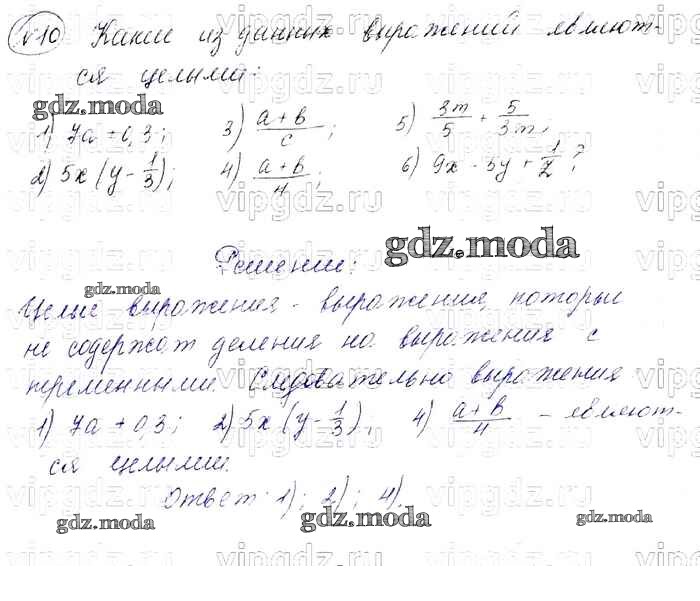 №10 Какие из данных выражений являют-
ся целыми:
1) 7a + 0,3; 3) (a+b)/c; 5) 3m/5 + 5/3m;
2) 5x (y - 1/3); 4) (a+b)/4; 6) 9x - 5y + 1/z?
Решение:
Целые выражения - выражения, которые
не содержат деления на выражения с
переменными. Следовательно выражения
1) 7a + 0,3; 2) 5x (y - 1/3); 4) (a+b)/4 - являют-
ся целыми.
Ответ: 1); 2); 4).
gdz.moda
gdz.moda
gdz.moda
gdz.moda
gdz.moda
gdz.moda
vipgdz.ru